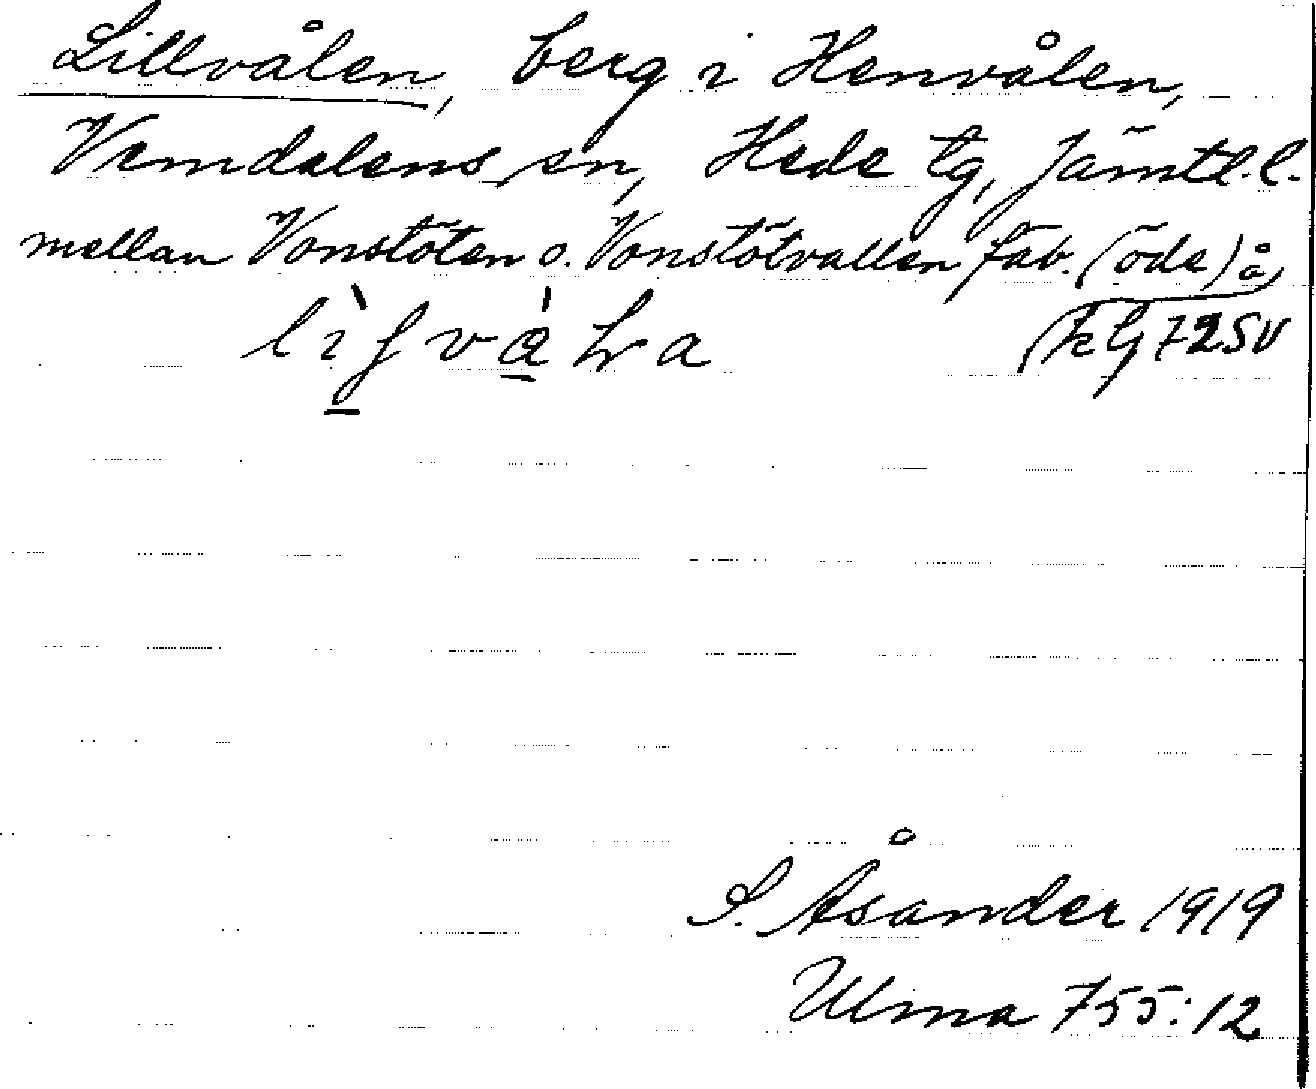 Lillvålen, berg i Henvålen,
Vemdalens sn, Hede tg, Jämtl. l.
mellan Vonstöten o. Vonstötvallen fäb. (öde) å
kG 72SV
S. Åsander 1919
Ulma 755:12